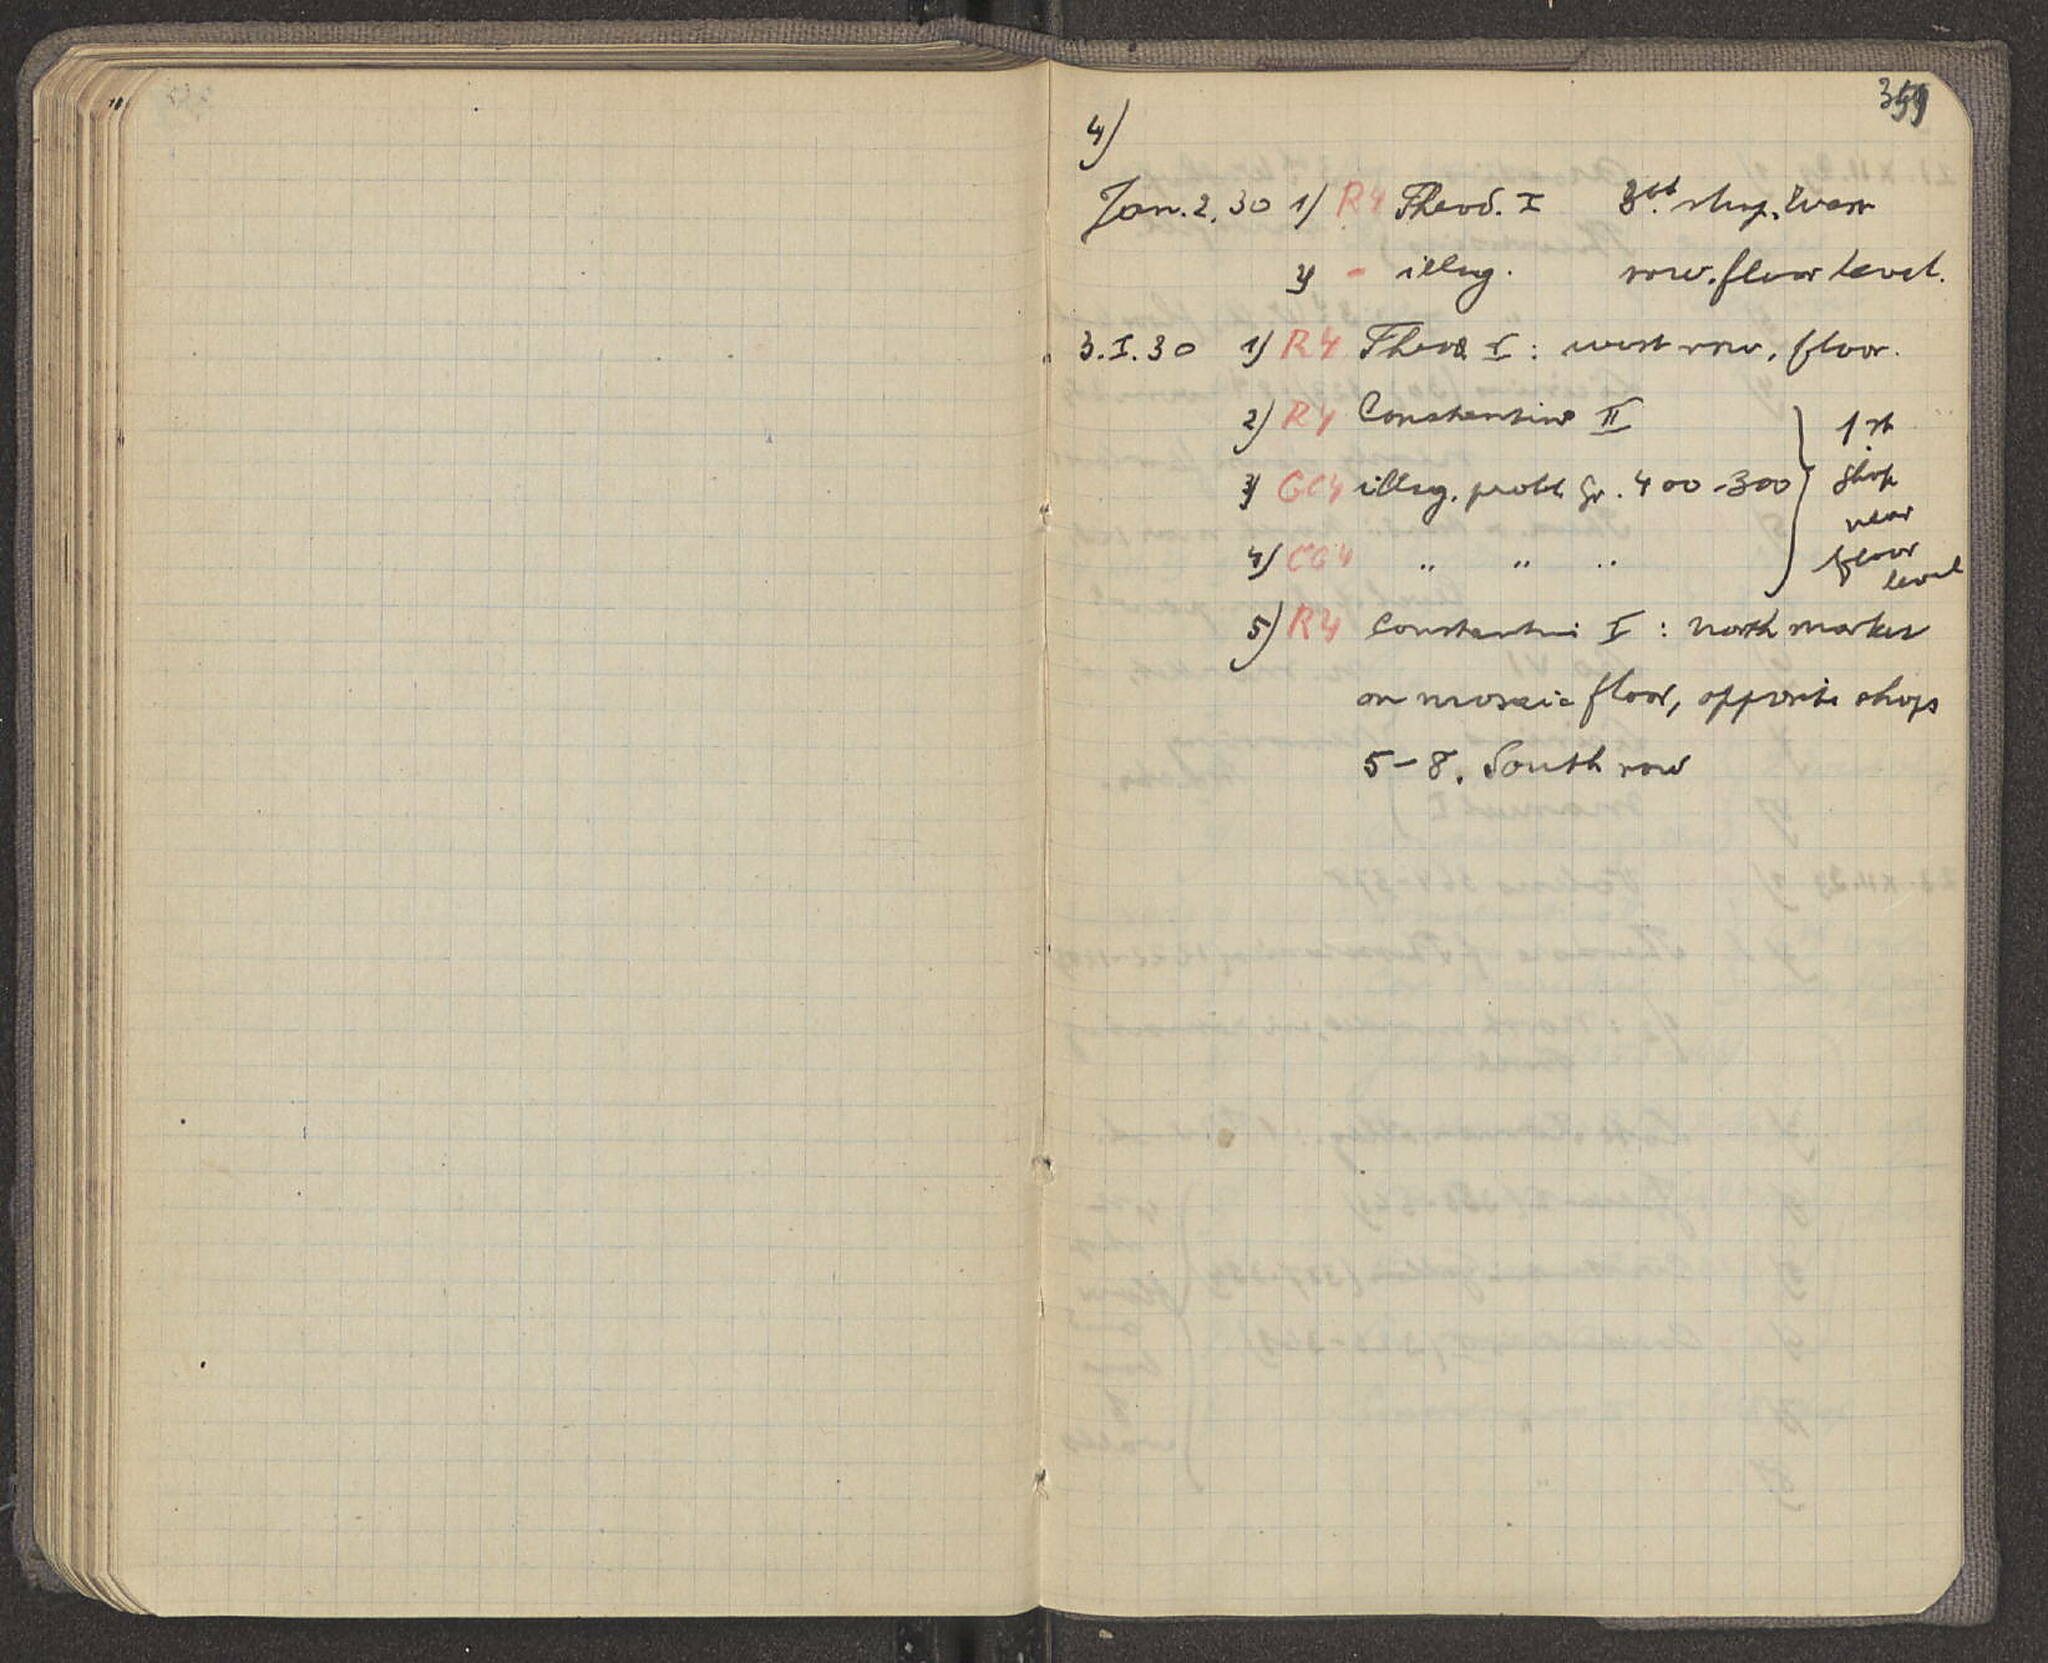 359
4)
Jan. 2. 30 1) R4 Theod. I 3rd. shop. West
2) - illeg. row. floor level.
3. I. 30 1) R4 Theod I : west row, floor.
2) R4 Constantine II
3) GC4 illeg. probl. Gr. 400-300
4) CG4 " " "
1st
shop
near
floor
level
5) R4 Constantin I : North market
on mosaic floor, opposite shops
5-8. South row